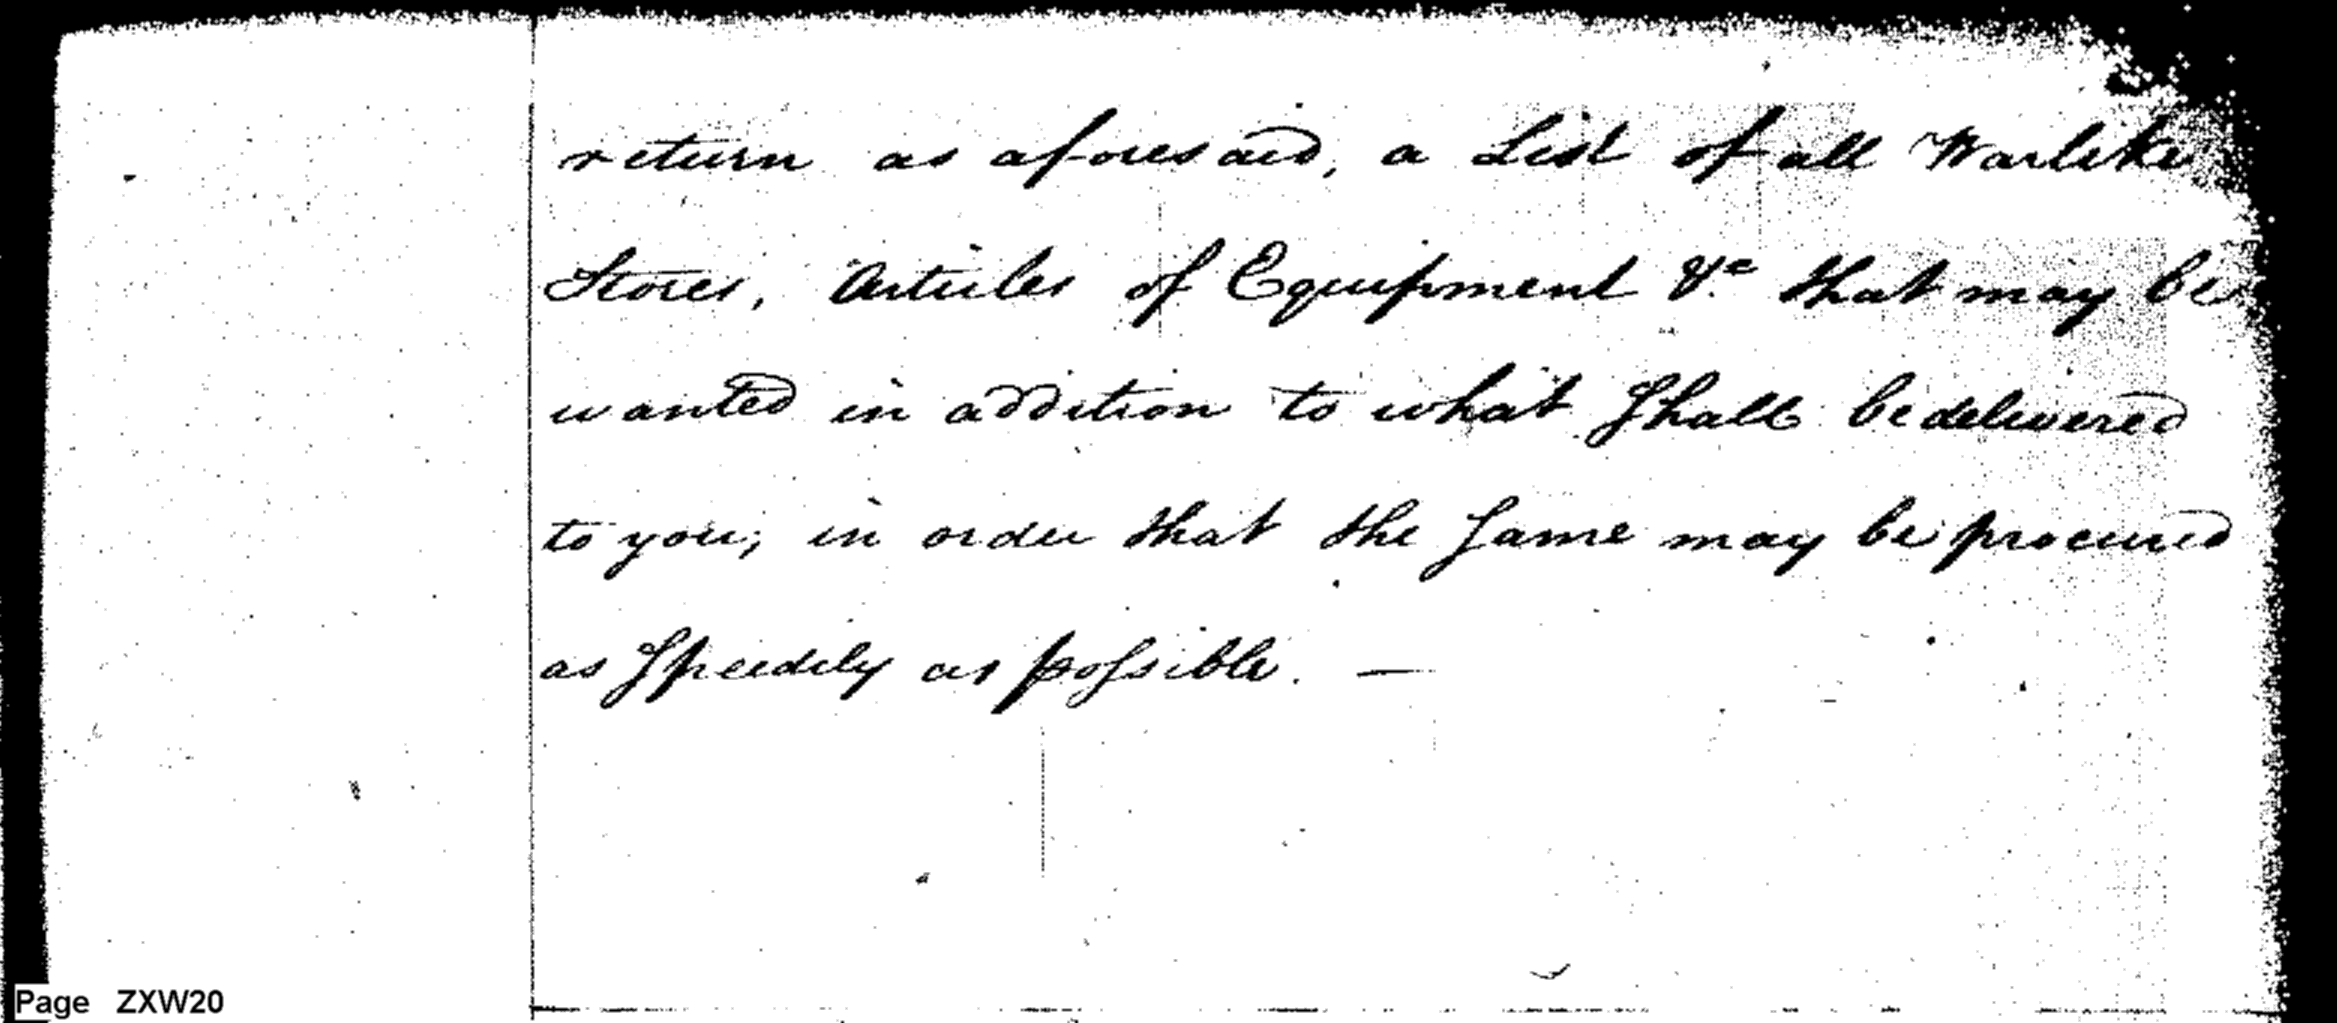 return as aforesaid, a List of all Warlike
Stores, Articles of Equipment &c that may be
wanted in addition to what Shall be delivered
to you; in order that the Same may be procured
as Speedily as possible. —
Page ZXW20